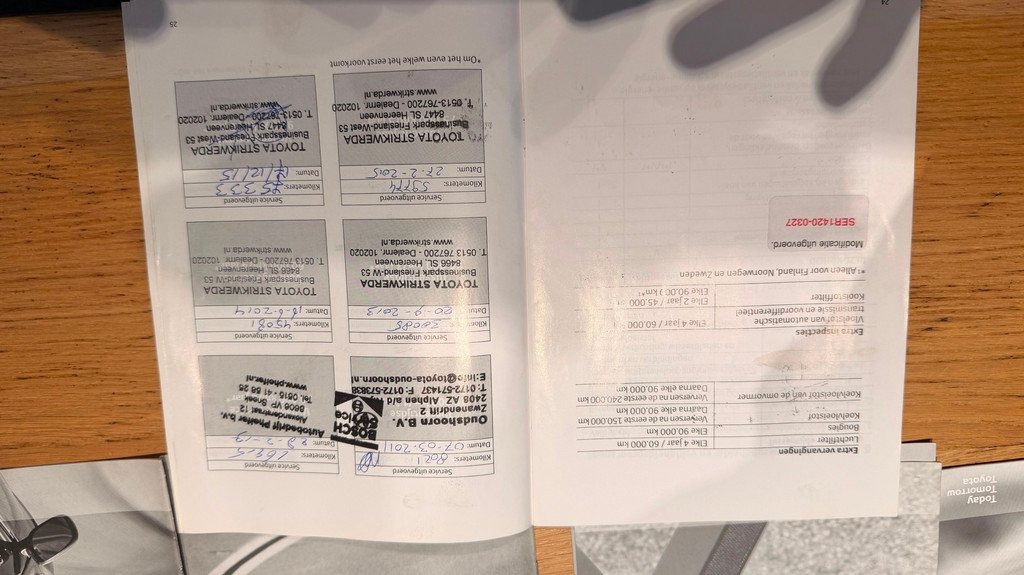 Extra vervangingen
Luchtfilter Elke 4 jaar / 60.000 km
Bougies Elke 90.000 km
Koelvloeistof Verversen na de eerste 150.000 km
Daarna elke 90.000 km
Koelvloeistof van de omvormer Verversen na de eerste 240.000 km
Daarna elke 90.000 km
Extra inspecties
Vloeistof van automatische
transmissie en voordifferentieel Elke 4 jaar / 60.000
Koolstoffilter Elke 2 jaar / 45.000
Elke 90.000 km*¹
*¹ Alleen voor Finland, Noorwegen, Zweden en
Modificatie uitgevoerd.
SER1420-0327
24
Service uitgevoerd
Kilometers: 8021
Datum: 07-03-2011
Oudshoorn B.V.
Zwanendrift 2
2408 AZ Alphen a/d
T: 0172-571437 F: 0172-573838
E:info@toyota-oudshoorn.nl
BOSCH
Service
Service uitgevoerd
Kilometers:
Datum:
Autobedrijf Phoffer b.v.
Alexanderstraat 12
8606 VP Sneek
Tel. 0515 - 41 56 25
www.phoffer.nl
Service uitgevoerd
Kilometers: 28085
Datum: 20-9-2013
TOYOTA STRIKWERDA
Businesspark Friesland-W 53
8466 SL Heerenveen
T. 0513 767200 - Dealernr. 102020
www.strikwerda.nl
Service uitgevoerd
Kilometers: 45081
Datum: 18-6-2014
TOYOTA STRIKWERDA
Businesspark Friesland-W 53
8466 SL, Heerenveen
T. 0513 767200 - Dealernr. 102020
www.strikwerda.nl
Service uitgevoerd
Kilometers: 59774
Datum: 27-2-2015
TOYOTA STRIKWERDA
Businesspark Friesland-West 53
8447 SL Heerenveen
T. 0513-767200 - Dealernr. 102020
www.strikwerda.nl
Service uitgevoerd
Kilometers: 75333
Datum: 17/12/15
TOYOTA STRIKWERDA
Businesspark Friesland-West 53
8447 SL Heerenveen
T. 0513-767200 - Dealernr. 102020
www.strikwerda.nl
*Om het even welke het eerst voorkomt
25
Today
Tomorrow
Toyota